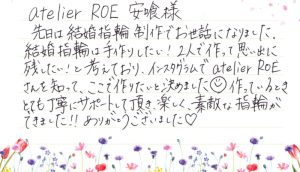 atelier ROE 安喰様
先日は結婚指輪制作でお世話になりました。
結婚指輪は手作りしたい!2人で作って思い出に
残したい!と考えており、インスタグラムでatelier ROE
さんを知って、ここで作りたいと決めました☺作っているとき
とても丁寧にサポートして頂き、楽しく、素敵な指輪が
できました!!ありがとうございました♡